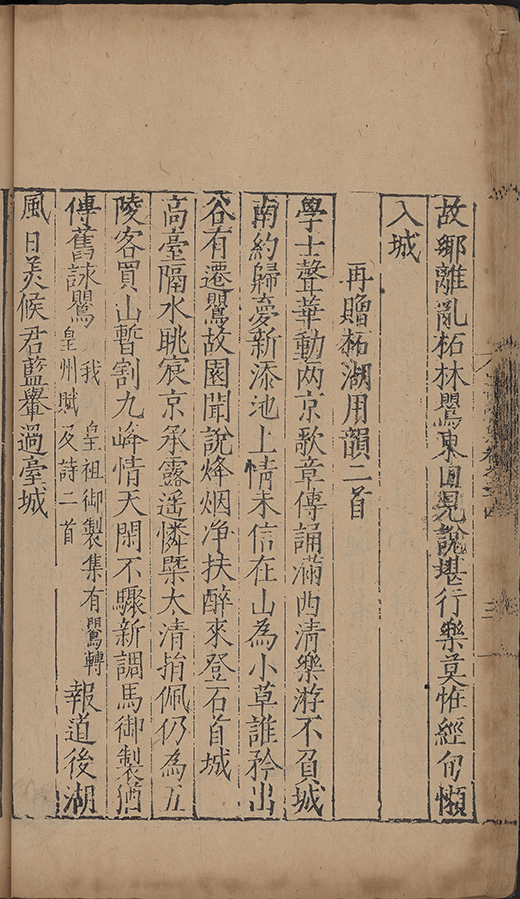 故鄉離亂柘林鸎東田見說堪行樂莫恠經旬懶
入城
再贈柘湖用韻二首
學士聲華動兩京歌章傳誦滿西清樂游不負城
南約歸夢新添池上情未信在山為小草誰矜出
谷有遷鸎故園聞說烽烟净扶醉來登石首城
高臺隔水眺宸京承露遥憐槩太清捐佩仍為五
陵客買山暫割九峰情天閑不驟新調馬御製猶
傳舊詠鸎我皇祖御製集有鸎轉皇州賦及詩二首報道後湖
風日美候君藍轝過臺城